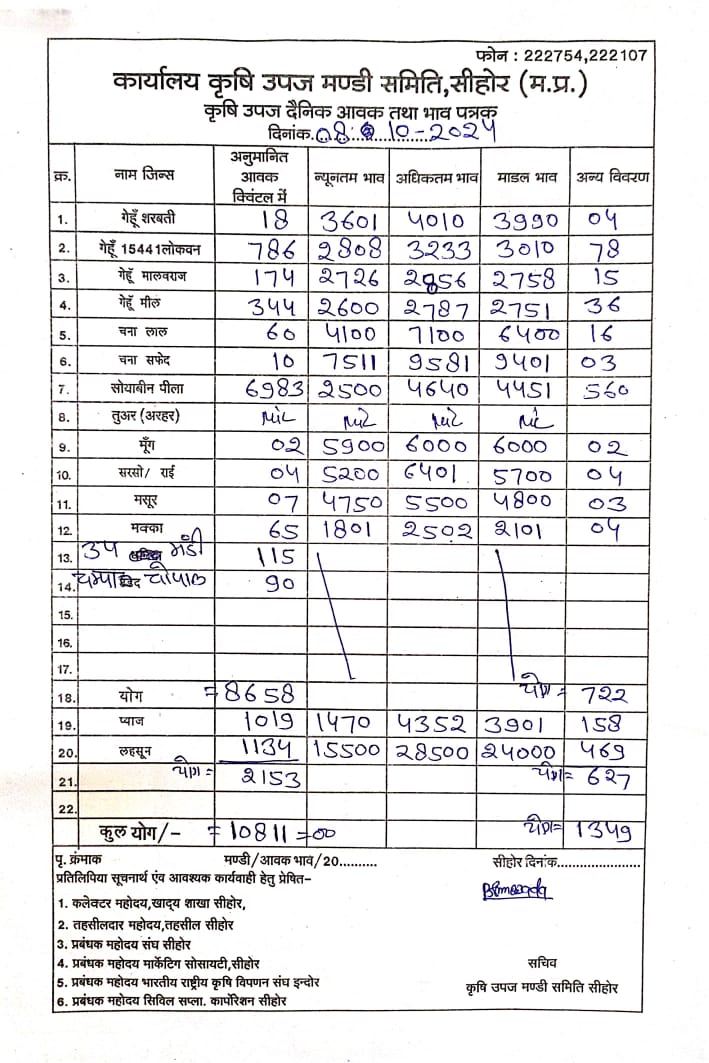 फोन : 222754,222107
कार्यालय कृषि उपज मण्डी समिति,सीहोर (म.प्र.)
कृषि उपज दैनिक आवक तथा भाव पत्रक
दिनांक. 08 10-2024
क्र. नाम जिन्स अनुमानित आवक क्विंटल में न्यूनतम भाव अधिकतम भाव माडल भाव अन्य विवरण
1. गेहूँ शरबती 18 3601 4010 3990 04
2. गेहूँ 15441लोकवन 786 2808 3233 3010 78
3. गेहूँ मालवराज 174 2726 2856 2758 15
4. गेहूँ मील 344 2600 2787 2751 36
5. चना लाल 60 4100 7100 6400 16
6. चना सफेद 10 7511 9581 9401 03
7. सोयाबीन पीला 6983 2500 4640 4451 560
8. तुअर (अरहर) Nil Nil Nil Nil
9. मूँग 02 5900 6000 6000 02
10. सरसो/ राई 04 5200 6401 5700 04
11. मसूर 07 4750 5500 4800 03
12. मक्का 65 1801 2502 2101 04
13. उप मंडी 115
14. चौपाल 90
15.
16.
17.
18. योग =8658 योग = 722
19. प्याज 1019 1470 4352 3901 158
20. लहसून 1134 15500 28500 24000 469
21. योग = 2153 योग= 627
22.
कुल योग/- =10811=00 योग= 1349
पृ. क्रंमाक मण्डी/आवक भाव/20.......... सीहोर दिनांक.....................
प्रतिलिपिया सूचनार्थ एंव आवश्यक कार्यवाही हेतु प्रेषित-
1. कलेक्टर महोदय,खाद्य शाखा सीहोर,
2. तहसीलदार महोदय,तहसील सीहोर
3. प्रबंधक महोदय संघ सीहोर
4. प्रबंधक महोदय मार्केटिग सोसायटी,सीहोर सचिव
5. प्रबंधक महोदय भारतीय राष्ट्रीय कृषि विपणन संघ इन्दोर कृषि उपज मण्डी समिति सीहोर
6. प्रबंधक महोदय सिविल सप्ला. कार्पोरेशन सीहोर